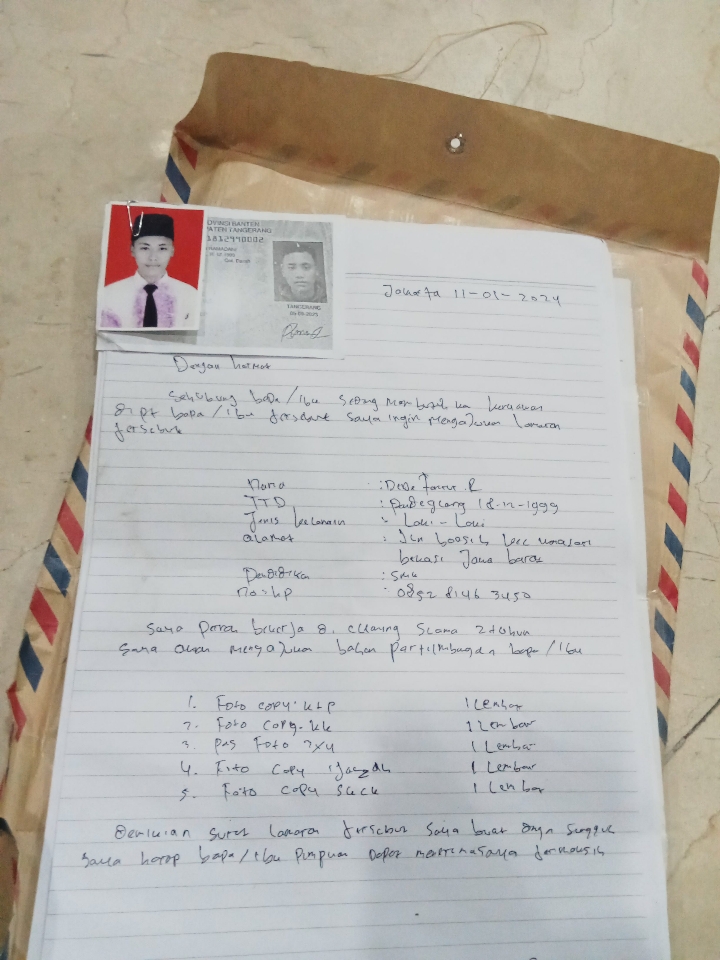 OVINSI BANTEN
PATEN TANGERANG
1812990002
TANGERANG
Jakarta 11-01-2024
Dengan hormat
Sehubung bapa/ibu karyawan
di pt bapa/ibu tersebut saya ingin mengajukan lamaran
tersebut
Nama : Dede R
TTD : Pandeglang 18-12-1999
Jenis kelamin : Laki-Laki
alamat : Jln
bekasi Jawa barat
Pendidikan : SMK
No:hp : 0852 8146 3450
Saya bekerja di Selama 2 tahun
Saya akan mengajukan bahan bapa/ibu
1. Foto copy. ktp 1 Lembar
2. Foto copy. kk 1 Lembar
3. pas Foto 3x4 1 Lembar
4. Foto copy ijazah 1 Lembar
5. Foto copy Skck 1 Lembar
Surat Lamaran tersebut Saya buat
Saya harap bapa/ibu dapat